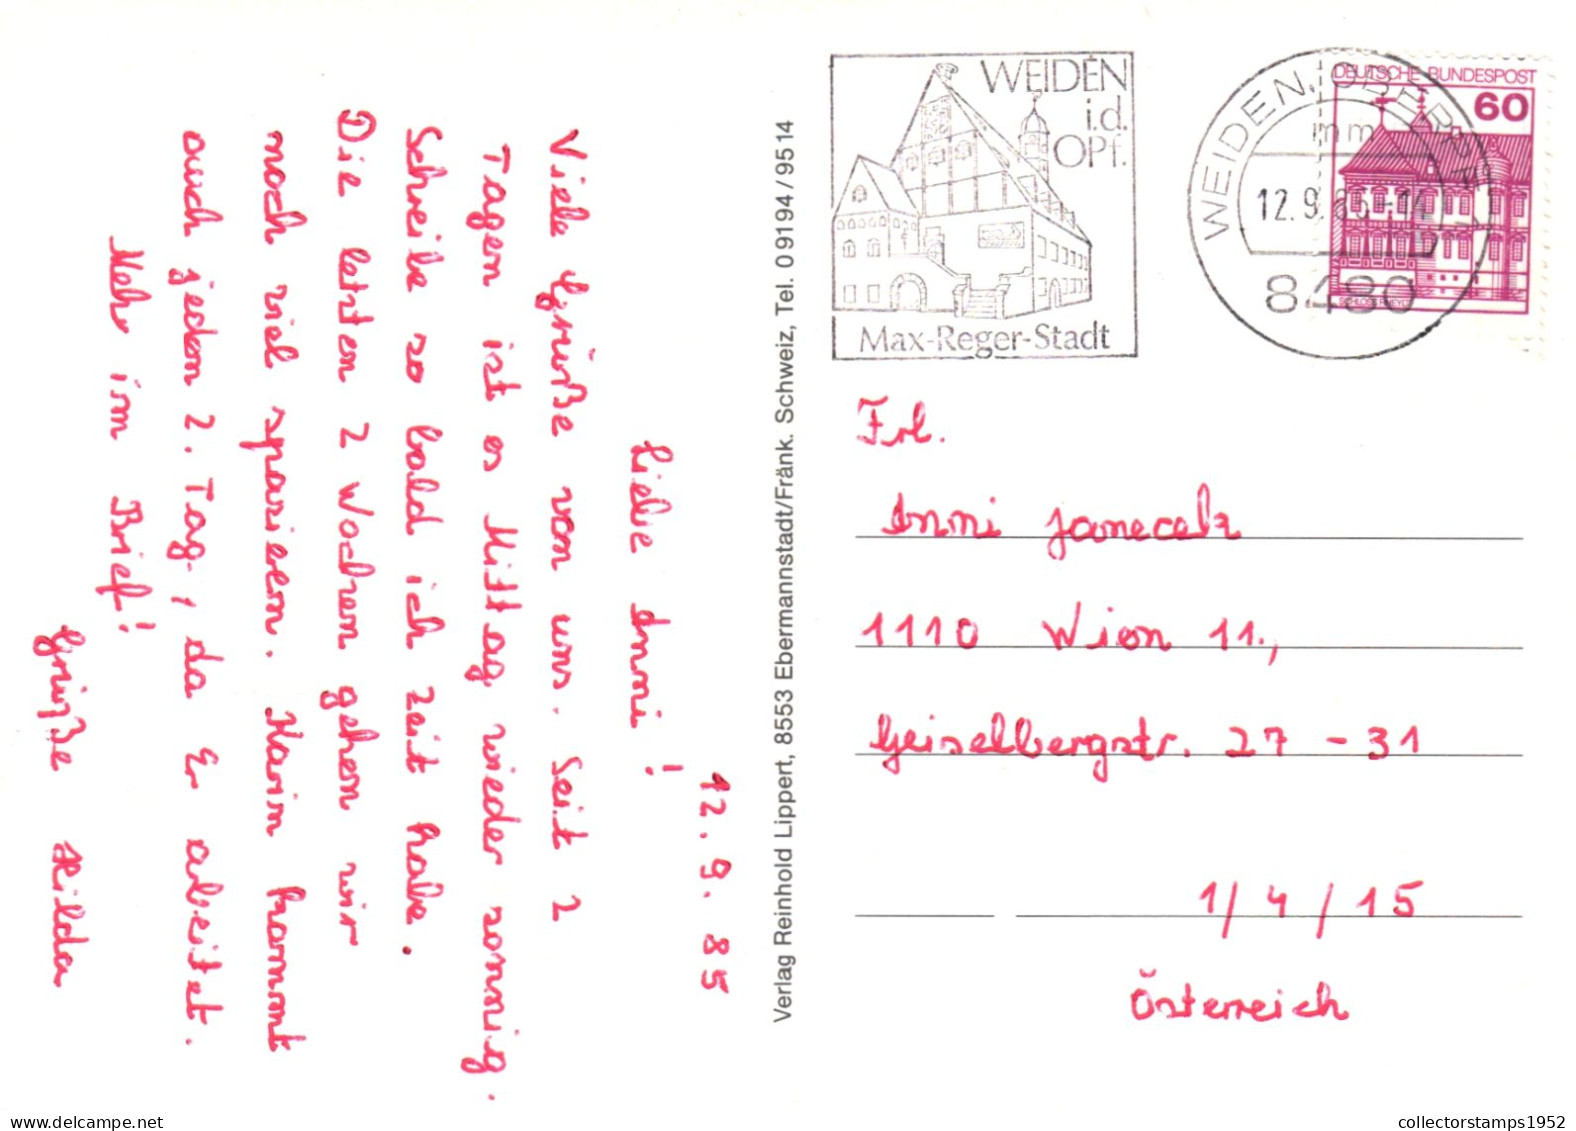 12.9.85
Liebe Anni!
Viele Grüße von uns. Seit 2
Tagen ist es Mittag wieder sonnig.
Schreibe so bald ich Zeit habe.
Die letzten 2 Wochen gehen wir
noch viel spazieren. Karin kommt
auch jeden 2. Tag, da Er arbeitet.
Mehr im Brief!
Grüße Hilda
Verlag Reinhold Lippert, 8553 Ebermannstadt/Fränk. Schweiz, Tel. 0 91 94 / 95 14
WEIDEN
i.d.
OPf.
Max-Reger-Stadt
WEIDEN, OBERPF 1
mm
12.9.85-14
8480
DEUTSCHE BUNDESPOST
60
Frl.
Anni Janecek
1110 Wien 11.,
Geiselbergstr. 27 - 31
1/4/15
Österreich
collectorstamps1952